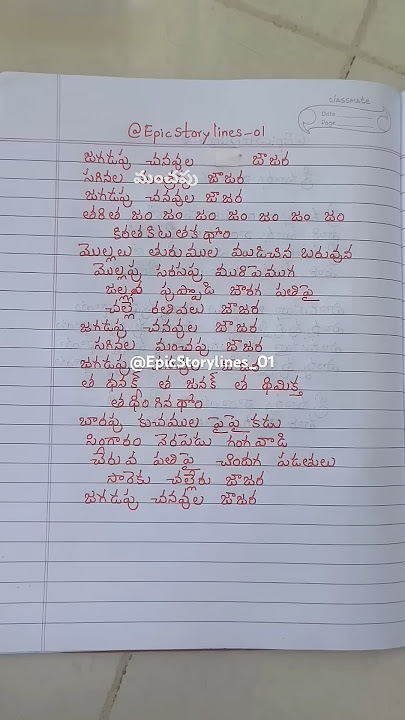 classmate
Date
Page
@EpicStorylines-01
జగడపు చనవుల జాజర
సగినల మంచపు జాజర
జగడపు చనవుల జాజర
తకిత జం జం జం జం జం జం జం
కిరతకిటతక థోం
మొల్లలు తురుముల ముడిచిన బరువున
మొల్లపు సరసపు మురిపెమున
జల్లన పుప్పొడి జారగ పతిపై
చల్లే రతివలు జాజర
జగడపు చనవుల జాజర
సగినల మంచపు జాజర
జగడపు
@EpicStorylines_01
త ధనక్ త జనక్ త ధిమిక్త
తధీంగినథోం
బారపు కుచముల పైపై కడు
సింగారం నెరపెడు గంగవాడి
చేరువ పతిపై చిందగ పడతులు
సారెకు చల్లేరు జాజర
జగడపు చనవుల జాజర